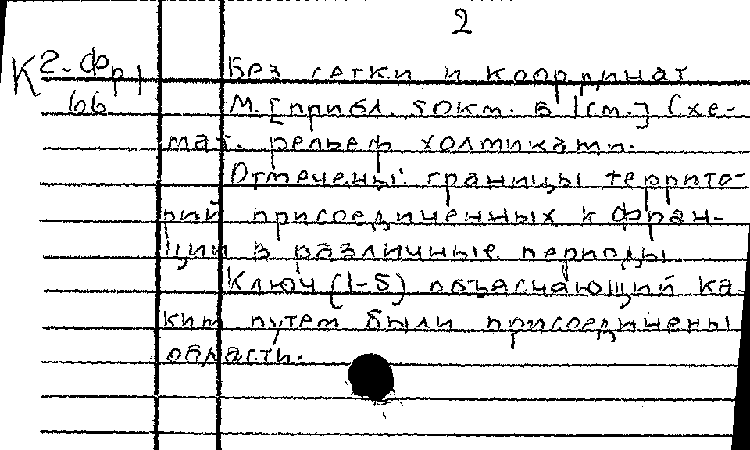 2
К 2-Фр 1
66
Без сетки и координат
М. [прибл. 50км. в 1см.] Схе-
мат. рельеф холмиками.
Отмечены границы террито-
рий присоединенных к Фран-
ции в различные периоды.
Ключ (1-5) объясняющий ка-
ким путем были присоединены
области.